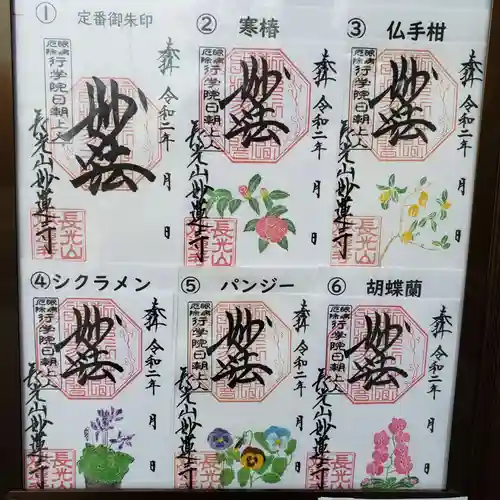 ① 定番御朱印
奉拝 令和二年 月 日
妙法
眼病
厄除
行学院日朝上人
長光山妙蓮寺
長光山
② 寒椿
奉拝 令和二年 月 日
妙法
眼病
厄除
行学院日朝上人
長光山妙蓮寺
長光山
③ 仏手柑
奉拝 令和二年 月 日
妙法
眼病
厄除
行学院日朝上人
長光山妙蓮寺
長光山
④ シクラメン
奉拝 令和二年 月 日
妙法
眼病
厄除
行学院日朝上人
長光山妙蓮寺
長光
⑤ パンジー
奉拝 令和二年 月 日
妙法
眼病
厄除
行学院日朝上人
長光山妙蓮寺
長光
⑥ 胡蝶蘭
奉拝 令和二年 月 日
妙法
眼病
厄除
行学院日朝上人
長光山妙蓮寺
長光